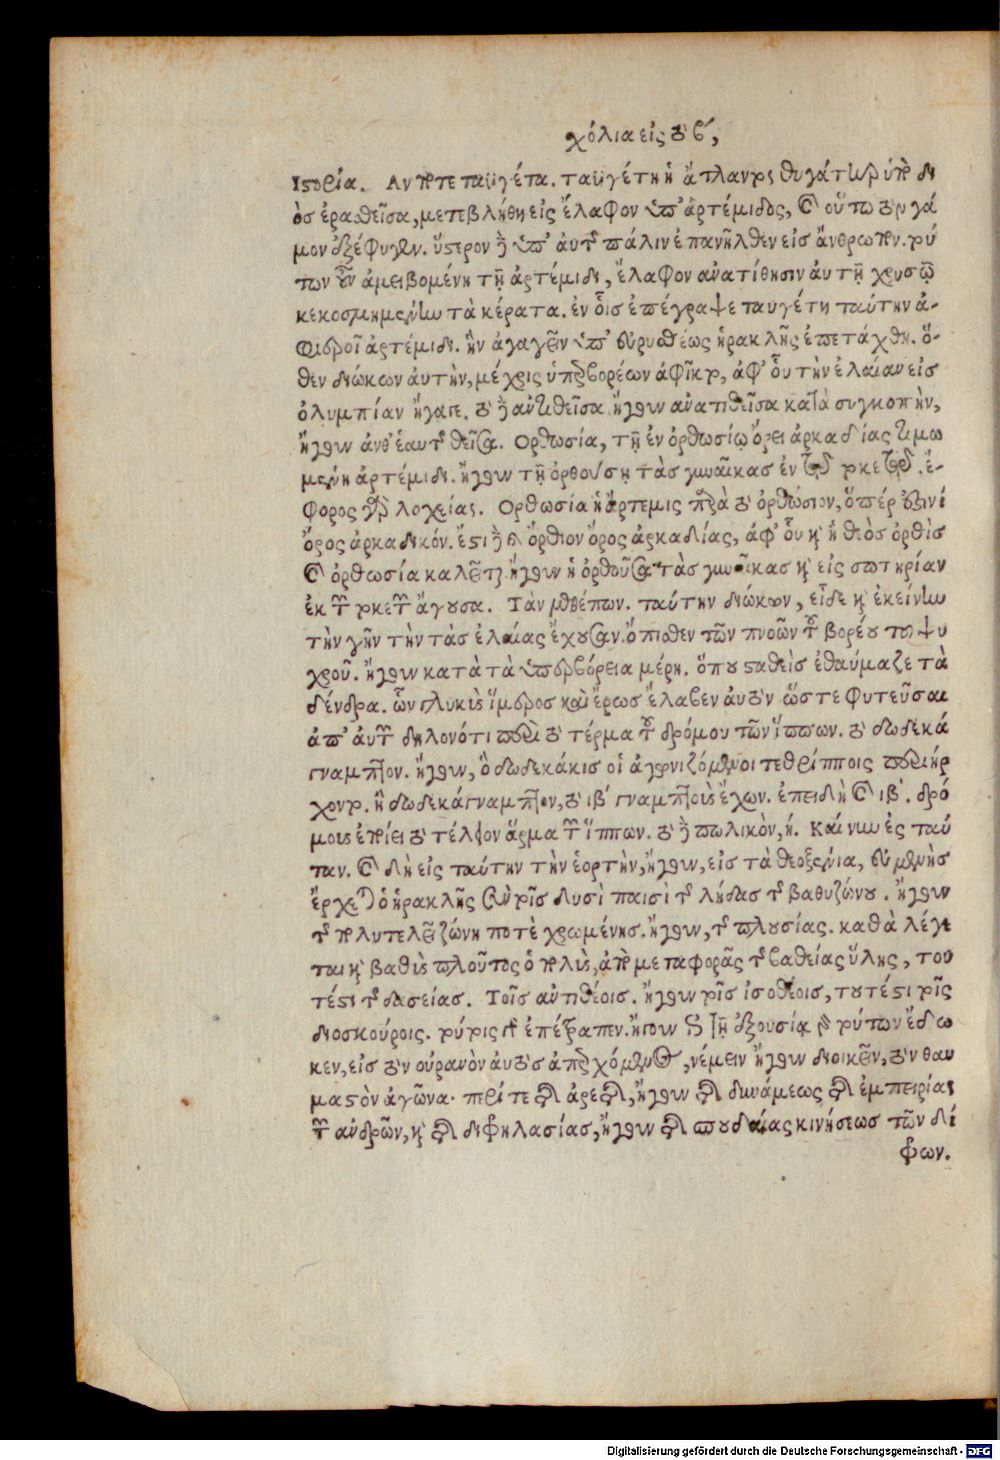 χόλια εἰς τὸ β´,
Ἱστορία. Ἄν ποτε ταϋγέτα. ταϋγέτη ἡ ἄτλαντος θυγάτηρ ὑπὸ δι
ὸς ἐρασθεῖσα, μετεβλήθη εἰς ἔλαφον ὑπ' ἀρτέμιδος, καὶ οὕτω τὸν γά
μον ἐξέφυγεν. ὕστερον δὲ ὑπ' αὐτοῦ πάλιν ἐπανῆλθεν εἰς ἄνθρωπον. τού
των οὖν ἀμειβομένη τῇ ἀρτέμιδι, ἔλαφον ἀνατίθησιν αὐτῇ χρυσῷ
κεκοσμημένην τὰ κέρατα. ἐν οἷς ἐπέγραψε ταυγέτη ταύτην ἀ-
φιεροῖ ἀρτέμιδι. ἣν ἀγαγεῖν ὑπ' εὐρυσθέως ἡρακλῆς ἐπετάχθη. ὅ-
θεν διώκων αὐτὴν, μέχρις ὑπερβορέων ἀφῖκτο, ἀφ' οὗ τὴν ἐλαίαν εἰς
ὀλυμπίαν ἤγαγε. τὸ δὲ ἀντιθεῖσα. ἤγουν ἀνατιθεῖσα κατὰ συγκοπὴν,
ἤγουν ἀνθ' ἑαυτοῦ θεῖσα. Ὀρθωσία, τῇ ἐν ὀρθωσίῳ ὄρει ἀρκαδίας τιμω
μένη ἀρτέμιδι. ἤγουν τῇ ὀρθούσῃ τὰς γυναῖκας ἐν τοῖς τοκετοῖς. ἔ-
φορος γὰρ λοχείας. Ὀρθωσία ἡ ἄρτεμις παρὰ τὸ ὀρθώσιον, ὅπέρ ἐστιν
ὄρος ἀρκαδικόν. ἔστι δὲ καὶ ὄρθιον ὄρος ἀρκαδίας, ἀφ' οὗ καὶ ἡ θεὸς ὀρθὶς
καὶ ὀρθωσία καλεῖται. ἤγουν ἡ ὀρθοῦσα τὰς γυναῖκας καὶ εἰς σωτηρίαν
ἐκ τῶν τοκετῶν ἄγουσα. Τὰν μεθέπων. ταύτην διώκων, εἶδε καὶ ἐκείνην
τὴν γῆν τὴν τὰς ἐλαίας ἔχουσαν. ὄπισθεν τῶν πνοῶν τοῦ βορέου τοῦ ψυ
χροῦ. ἤγουν κατὰ τὰ ὑπερβόρεια μέρη. ὅπου σταθεὶς ἐθαύμαζε τὰ
δένδρα. ὧν γλυκὺς ἵμερος καὶ ἔρως ἔλαβεν αὐτὸν ὥστε φυτεῦσαι
ἀπ' αὐτῶν δηλονότι περὶ τὸ τέρμα τοῦ δρόμου τῶν ἵππων. τὸ δωδεκά
γναμπτον. ἤγουν, ὃ δωδεκάκις οἱ ἀγωνιζόμενοι τεθρίπποις περιήρ
χοντο. ἢ δωδεκάγναμπτον, τὸ ιβ´ γναμπτοὺς ἔχων. ἐπειδὴ καὶ ιβ´. δρό
μους ἐποίει τὸ τέλειον ἅρμα τῶν ἵππων. τὸ δὲ πωλικὸν, η´. Καί νυν ἐς ταύ
ταν. καὶ δὴ εἰς ταύτην τὴν ἑορτὴν, ἤγουν, εἰς τὰ θεοξένια, εὐμενὴς
ἔρχεται ὁ ἡρακλῆς σὺν τοῖς δυσὶ παισὶ τοῦ λήδας τοῦ βαθυζώνου. ἤγουν
τοῦ πολυτελεῖ ζώνῃ ποτὲ χρωμένης. ἤγουν, τοῦ πλουσίας. καθὰ λέγε
ται καὶ βαθὺς πλοῦτος ὁ πολὺς, ἀπὸ μεταφορᾶς τοῦ βαθείας ὕλης, του
τέστι τοῦ δασείας. Τοῖς ἀντιθέοις. ἤγουν τοῖς ἰσοθέοις, τουτέστι τοῖς
διοσκούροις. τούτοις γὰρ ἐπέτραπεν. ἤγουν ἐπὶ τῇ ἐξουσίᾳ τῇ τούτων ἔδω
κεν, εἰς τὸν οὐρανὸν αὐτὸς ἀπερχόμενος, νέμειν ἤγουν διοικεῖν, τὸν θαυ
μαστὸν ἀγῶνα. περί τε τῆς ἀρετῆς, ἤγουν τῆς δυνάμεως τῆς ἐμπειρίας
τῶν ἀνδρῶν, καὶ τῆς διφρηλασίας, ἤγουν τῆς σπουδαίας κινήσεως τῶν δί
φρων.
Digitalisierung gefördert durch die Deutsche Forschungsgemeinschaft - DFG